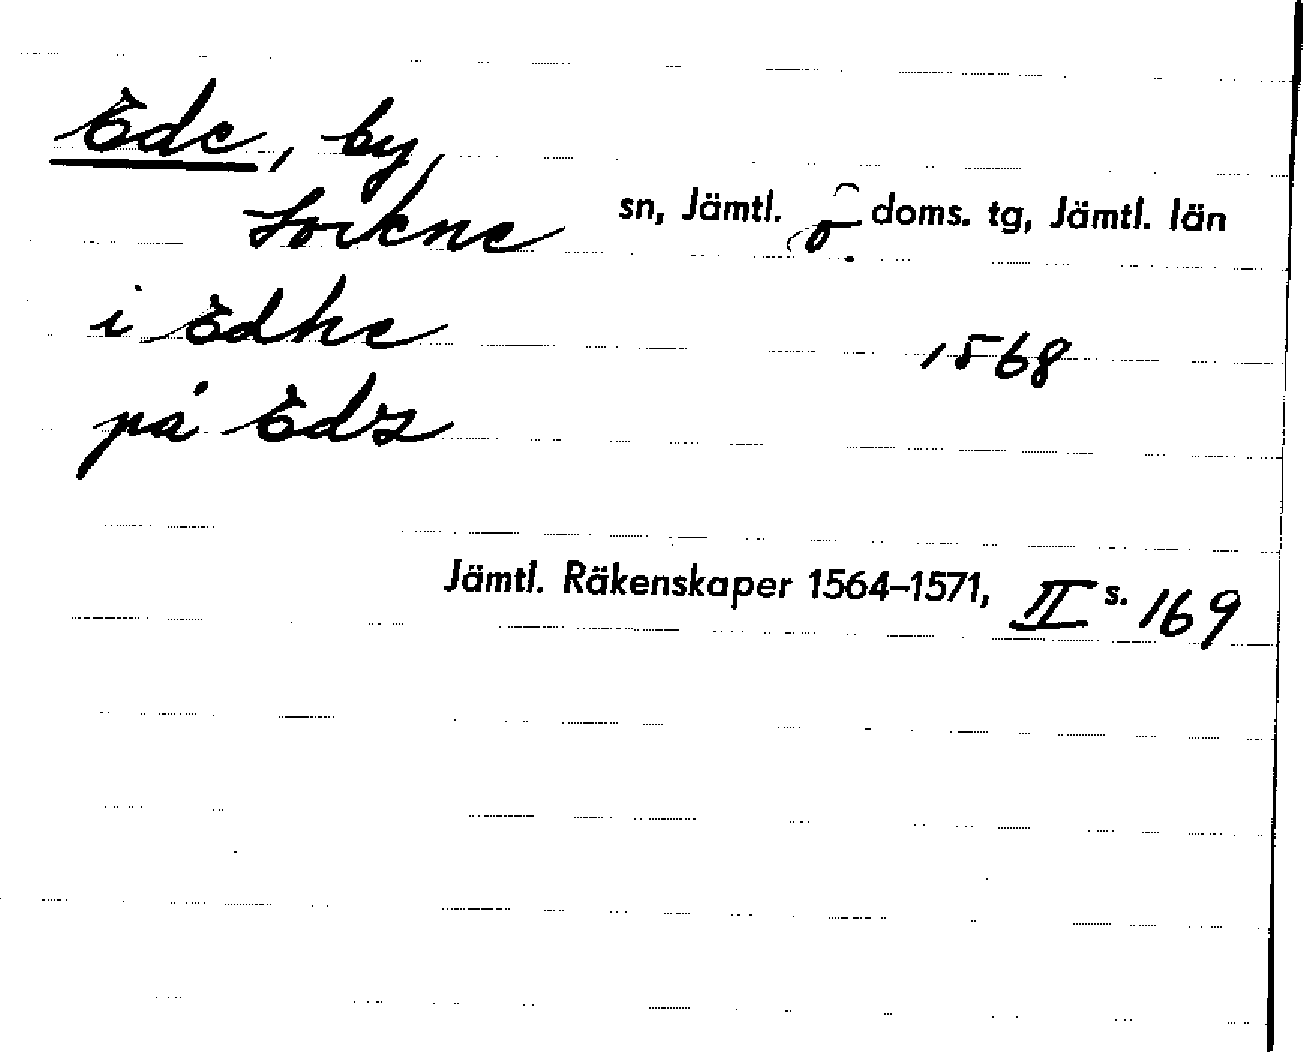 Ede, by
Lockne sn, Jämtl. ö. doms. tg, Jämtl. län
i Edhe 1568
på Edz
Jämtl. Räkenskaper 1564–1571, II s. 169